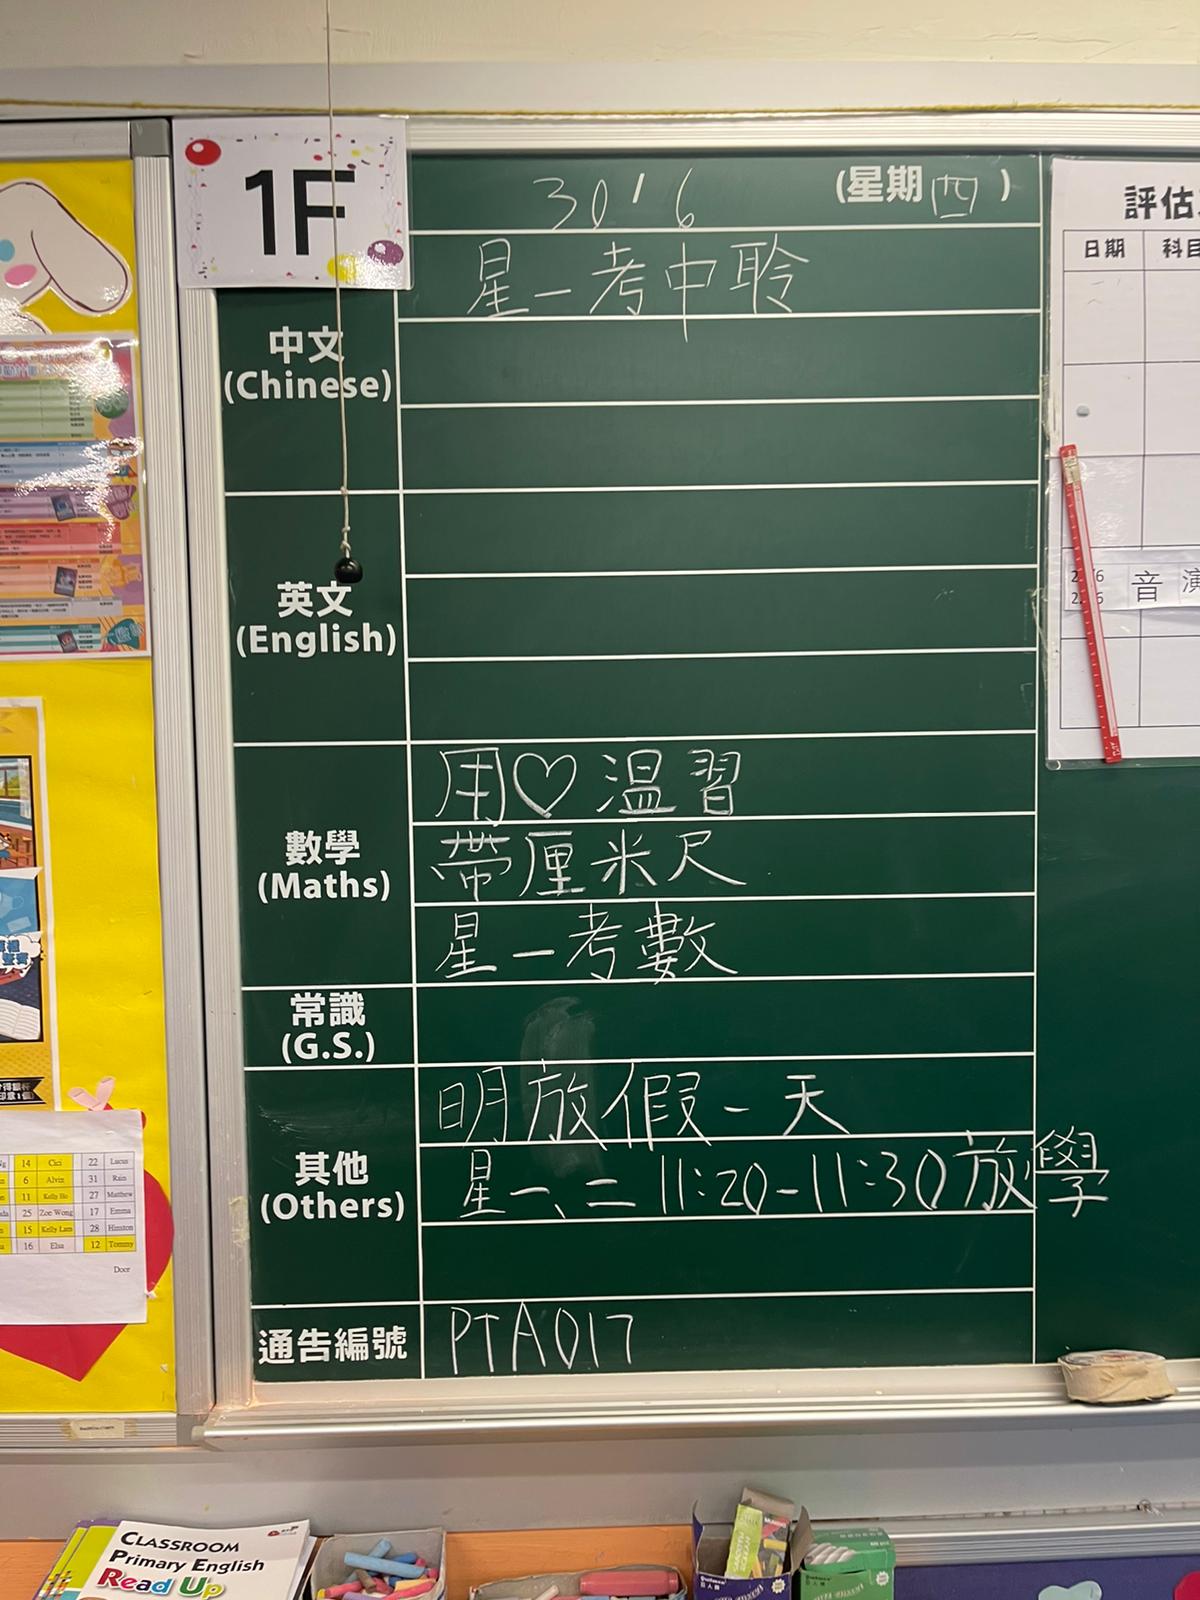 1F
30/6
(星期四)
星一考中聆
中文
(Chinese)
英文
(English)
用♡温習
帶厘米尺
星一考數
數學
(Maths)
常識
(G.S.)
明放假一天
星一、二 11:20-11:30放學
其他
(Others)
通告編號
PTA017
評估
日期 科目
音 演
14 Cici 22 Lucus
6 Alvin 31 Rain
11 Kelly Ho 27 Matthew
25 Zoe Wong 17 Emma
15 Kelly Lam 28 Hinston
16 Elsa 12 Tommy
Door
CLASSROOM
Primary English
Read Up